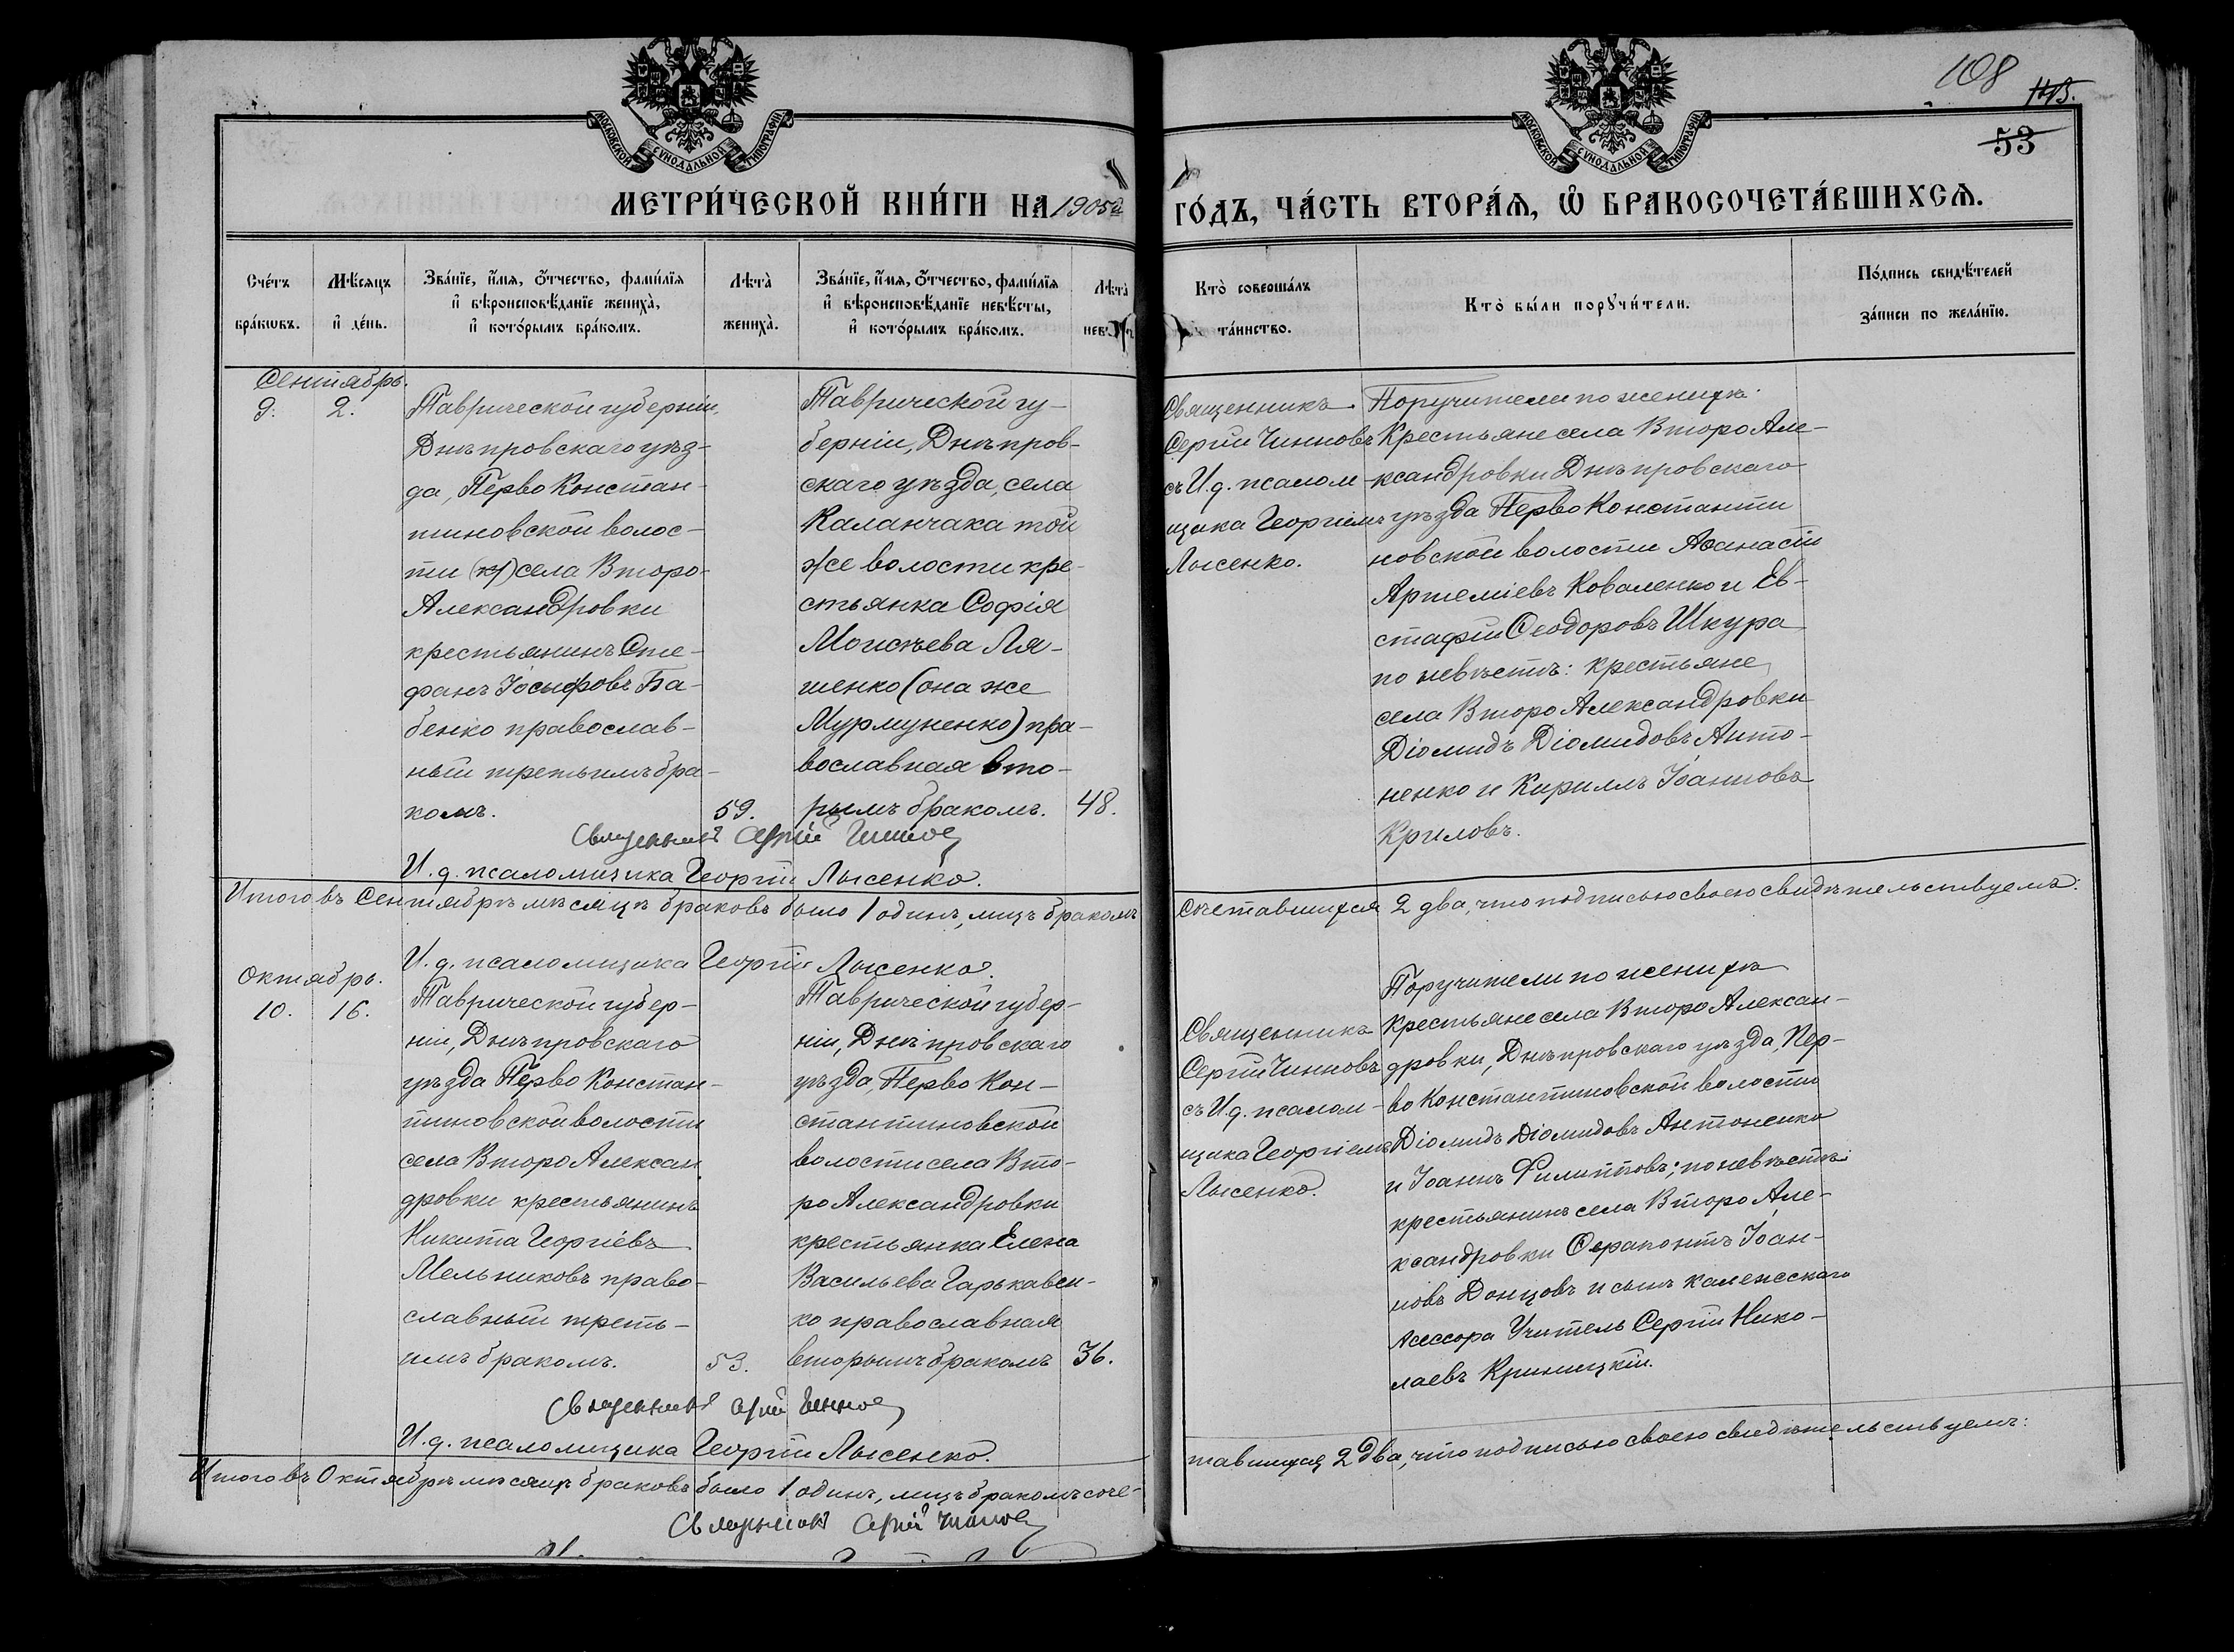 108
115.
53
МОСКОВСКОЙ СѴНОДАЛЬНОЙ ТИПОГРАФІИ
МОСКОВСКОЙ СѴНОДАЛЬНОЙ ТИПОГРАФІИ
МЕТРИ́ЧЕСКОЙ КНИ́ГИ НА 1905й
ГО́ДЪ, ЧА́СТЬ ВТОРА́Ѧ, Ѽ БРАКОСОЧЕТА́ВШИХСѦ.
Сче́тъ бра́кѡвъ.
Мѣ́сяцъ и҆ де́нь.
Зва́нїе, и҆́мя, ѻ҆́тчество, фами́лїя
и҆ вѣроисповѣ́данїе жениха̀,
и҆ кото́рымъ бра́комъ.
Лѣта̀
жениха̀.
Зва́нїе, и҆́мя, ѻ҆́тчество, фами́лїя
и҆ вѣроисповѣ́данїе невѣ́сты,
и҆ кото́рымъ бра́комъ.
Лѣта̀
Кто̀ соверша́лъ
та́инство.
Кто̀ бы́ли порꙋчи́тели.
По́дпись свидѣ́телей
за́писи по жела́нїю.
Сентябрь.
9. 2.
Таврической губерніи,
Днѣпровскаго уѣз-
да, Перво Констан-
тиновской волос-
ти села Второ-
Александровки
крестьянинъ Сте-
фанъ Іосифовъ Ба-
бенко православ-
ный третьимъ бра-
комъ.
59.
Таврической гу-
берніи, Днѣпров-
скаго уѣзда, села
Каланчака той
же волости кре-
стьянка Софія
Моисѣева Ля-
шенко (она же
Мурмуненко) пра-
вославная вто-
рымъ бракомъ.
48.
Священникъ
Сергій Чинновъ
съ И. д. псалом-
щика Георгіемъ
Лысенко.
Поручители по женихѣ:
Крестьяне села Второ Але-
ксандровки Днѣпровскаго
уѣзда Перво Константи
новской волости Аѳанасій
Артеміевъ Коваленко и Ев-
стафій Ѳеодоровъ Шкура
по невѣстѣ: крестьяне
села Второ Александровки
Діомидъ Діомидовъ Анто-
ненко и Кириллъ Іоанновъ
Криловъ.
Священникъ Сергій Чинновъ
И. д. псаломщика Георгій Лысенко.
Итого въ Сентябрѣ мѣсяцѣ браковъ было 1 одинъ, лицъ бракомъ
сочетавшихся 2 два, что подписью своею свидѣтельствуемъ:
И. д. псаломщика Георгій Лысенко.
Октябрь.
10. 16.
Таврической губер-
ніи, Днѣпровскаго
уѣзда Перво Констан-
тиновской волости
села Второ Алексан
дровки крестьянинъ
Никита Георгіевъ
Мельниковъ право-
славный треть-
имъ бракомъ.
53.
Таврической губер-
ніи, Днѣпровскаго
уѣзда, Перво Кон-
стантиновской
волости села Вто-
ро Александровки
крестьянка Елена
Васильева Гарькавен-
ко православная
вторымъ бракомъ
36.
Священникъ
Сергій Чинновъ
съ И. д. псалом-
щика Георгіемъ
Лысенко.
Поручители по женихѣ
крестьяне села Второ Алексан-
дровки, Днѣпровскаго уѣзда, Пер-
во Константиновской волости
Діомидъ Діомидовъ Антоненко
и Іоаннъ Филипповъ; по невѣстѣ:
крестьянинъ села Второ Але-
ксандровки Ѳерапонтъ Іоан-
новъ Донцовъ и сынъ Калежскаго
Асессора Учитель Сергій Нико-
лаевъ Криницкій.
Священникъ Сергій Чинновъ
И. д. псаломщика Георгій Лысенко.
Итого въ Октябрѣ мѣсяцѣ браковъ было 1 одинъ, лицъ бракомъ соче-
тавшихся 2 два, что подписью своею свидѣтельствуемъ:
Священникъ Сергій Чинновъ